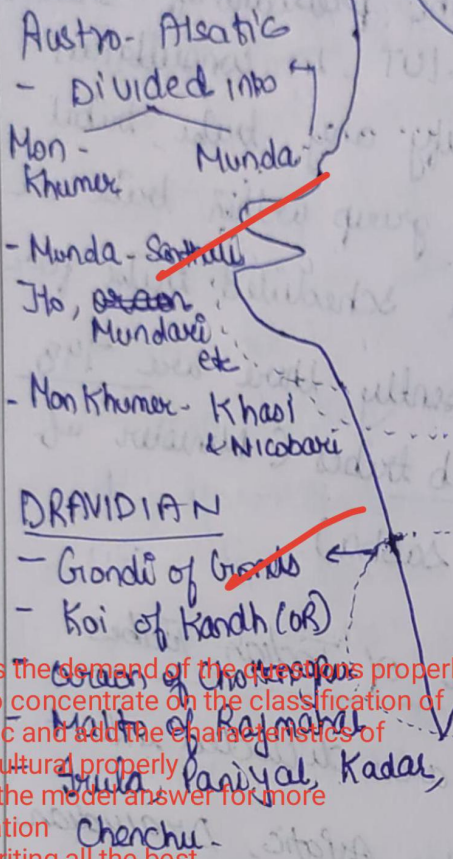 Austro- Alsatic
- Divided into
Mon - Khumer
Munda
- Munda - Santhali
Ho, oraon
Mundari
etc
- Mon Khumer - Khasi
& Nicobari
DRAVIDIAN
- Gondi of Gonds
- Koi of Kandh (OR)
- Oraon of Chottanagpur
- Malto of Rajmahal
- Irula, Paniyal, Kadar,
Chenchu.
s the demand of the questions properl
o concentrate on the classification of
c and add the characteristics of
ultural properly
the model answer for more
ation
riting all the best